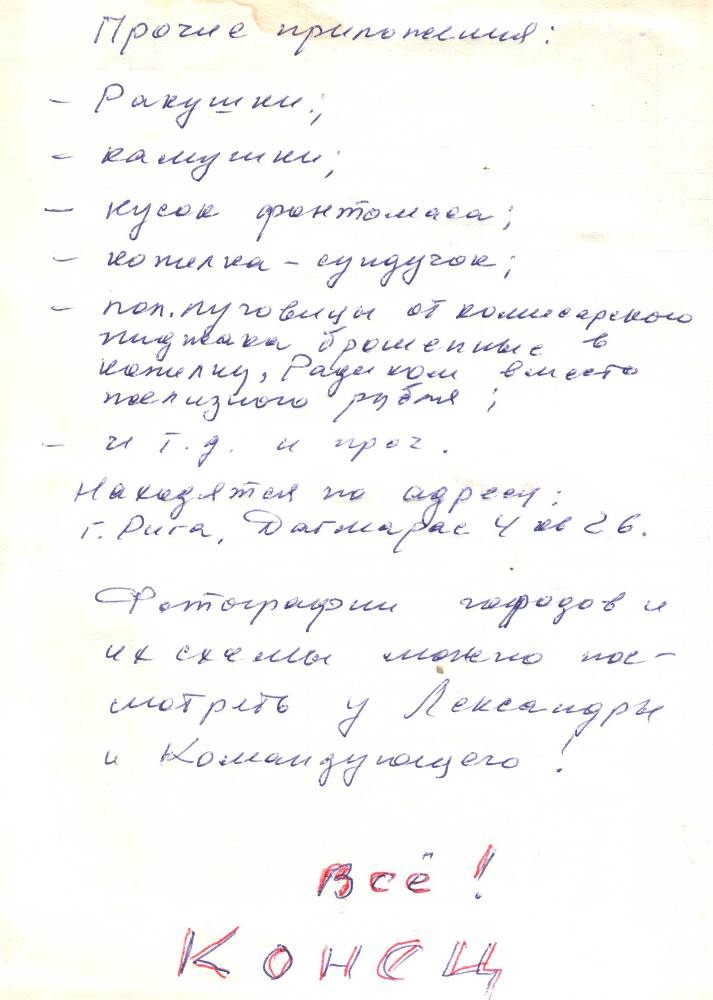 Прочие приложения:
- Ракушки;
- камушки;
- кусок фантомаса;
- копилка-сундучок;
- пол.пуговицы от комисарского
пиджака брошенные в
копилку, Радиком вместо
желизного рубля;
- и т.д. и проч.
Находятся по адресу:
г. Рига, Дагмарас 4 кв 26.
Фотографии городов и
их схемы можно пос-
мотреть у Лександры
и Командующего!
Всё!
Конец